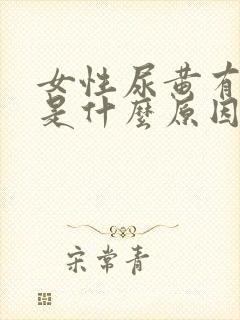 女性尿黄有
是什麼原因
宋常青